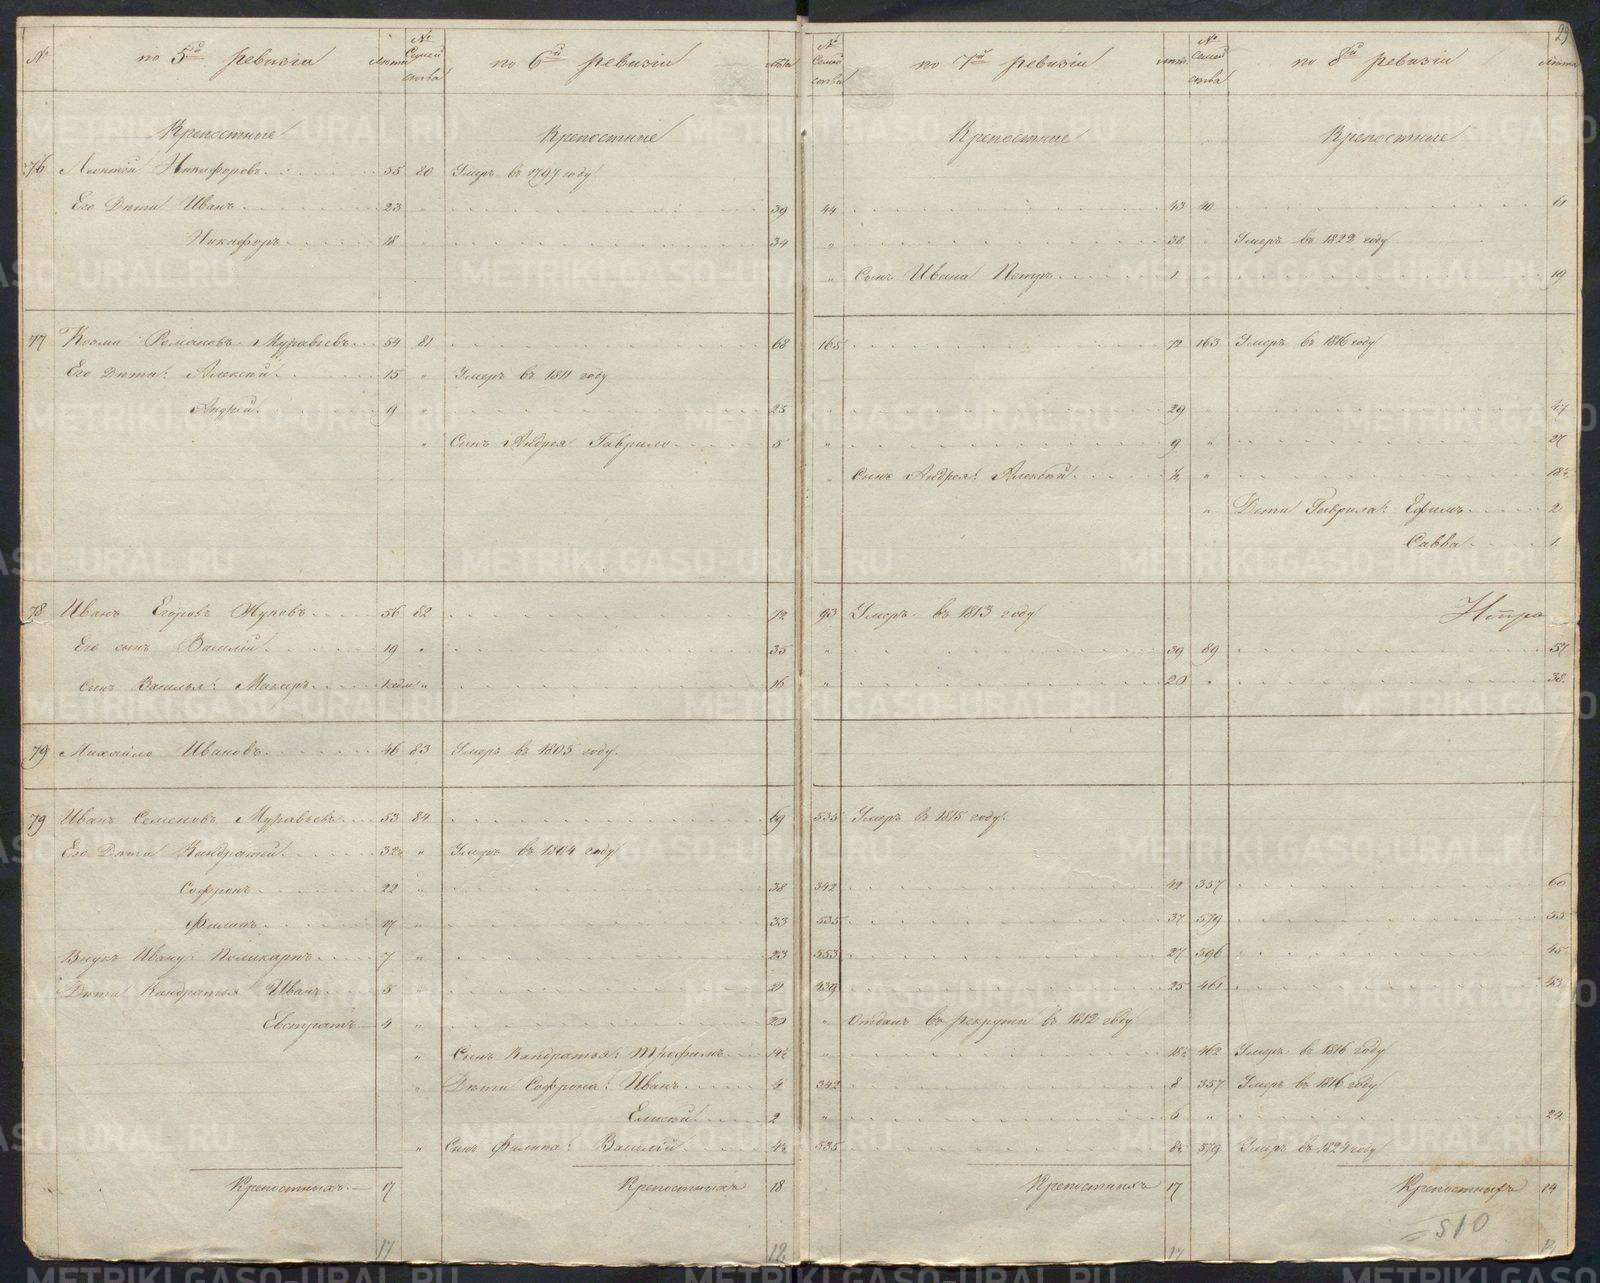 № по 5ой ревизіи лѣта № Семейства по 6й ревизіи лѣта № Семейства по 7й ревизіи лѣта № Семейства по 8й ревизіи лѣта 29
Крепостные Крепостные Крепостные Крепостные
76 Леонтій Никифоровъ 55 80 Умеръ въ 1797 году
Его Дѣти Иванъ 23 " 39 44 43 40 61
Никифоръ 18 " 34 " 38 " Умеръ въ 1822 году
" Сынъ Ивана Петръ 1 " 19
77 Козма Романовъ Муравьевъ 54 81 68 165 72 163 Умеръ въ 1816 году
Его Дѣти: Алексѣй 15 " Умеръ въ 1811 году
Андрей 9 " 25 " 29 " 47
" Сынъ Андрея Гаврило 5 " 9 " 27
" Сынъ Андрея: Алексѣй ½ " 18½
" Дѣти Гаврила: Ефимъ 2
Савва 1
78 Иванъ Егоровъ Жуковъ 56 82 72 93 Умеръ въ 1813 году
Его сынъ Василій 19 " 35 " 39 89 57
Сынъ Василья: Макаръ " 16 " 20 " 38
79 Михайло Ивановъ 46 83 Умеръ въ 1805 году
79 Иванъ Семеновъ Муравьевъ 53 84 69 535 Умеръ въ 1815 году
Его Дѣти Кандратей 32 " Умеръ въ 1804 году
Софронъ 22 " 38 342 42 357 60
Филипъ 17 " 33 535 37 579 55
Внукъ Ивану: Поликарпъ 7 " 23 553 27 596 45
Дѣти Кандратья Иванъ 5 " 21 439 25 461 43
Евстратъ 4 " 20 " Отданъ въ рекруты въ 1812 году
" Сынъ Кандратья: Трофимъ 14½ " 18½ 462 Умеръ въ 1816 году
" Дѣти Софрона: Иванъ 4 342 8 357 Умеръ въ 1816 году
Елисѣй 2 " 6 " 24
" Сынъ Филипа: Василій 4½ 535 8½ 579 Умеръ въ 1824 году
Крепостныхъ 17 Крепостныхъ 18 Крепостныхъ 17 Крепостныхъ 14
=510
17 12 17
METRIKI.GASO-URAL.RU